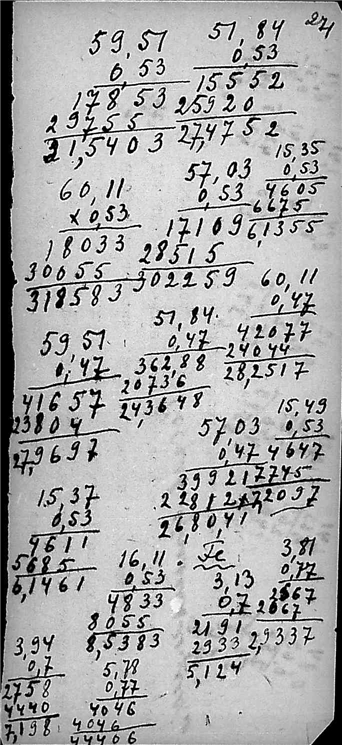 24
59,51
0,53
17853
29755
31,5403
51,84
0,53
15552
25920
27,4752
60,11
x 0,53
18033
30055
318583
57,03
0,53
17109
28515
302259
15,35
0,53
4605
6675
6,1355
59 51
0,47
41657
23804
27,9697
51,84
0,47
36288
20736
24,3648
60,11
0,47
42077
24044
28,2517
57 03
0,47
39921
22812
26,8041
15,49
0,53
4647
7745
72097
15,37
0,53
4611
5685
6,1461
16,11
0,53
4833
8055
8,5383
Fe
3,13
0,7
2191
2933
5,124
3,81
0,77
2667
2667
2,9337
3,94
0,7
2758
4440
7,198
5,78
0,77
4046
4046
44406